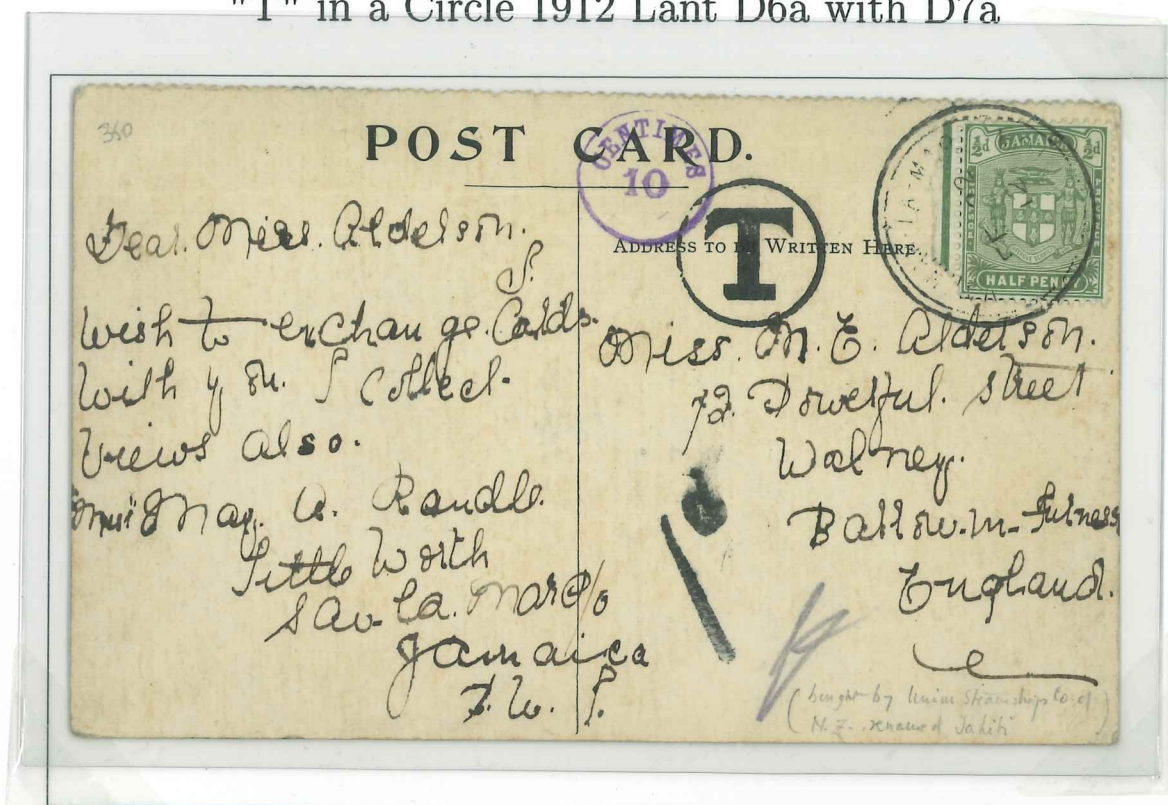 "T" in a Circle 1912 Lant D6a with D7a
360
POST CARD.
CENTIMES
10
T
ADDRESS TO BE WRITTEN HERE.
½d JAMAICA ½d
HALF PENNY
Dear Miss Alderson.
I
wish to exchange Cards.
with you. I Collect.
Views also.
May. A. Randle.
Little Worth
Sav-la-Mar P/o
Jamaica
B. W. I.
Miss. M. E. Alderson.
72. Street
Walney.
Barrow-in-Furness
England.
(bought by Union Steamships Co. of
N.Z. renamed Tahiti)